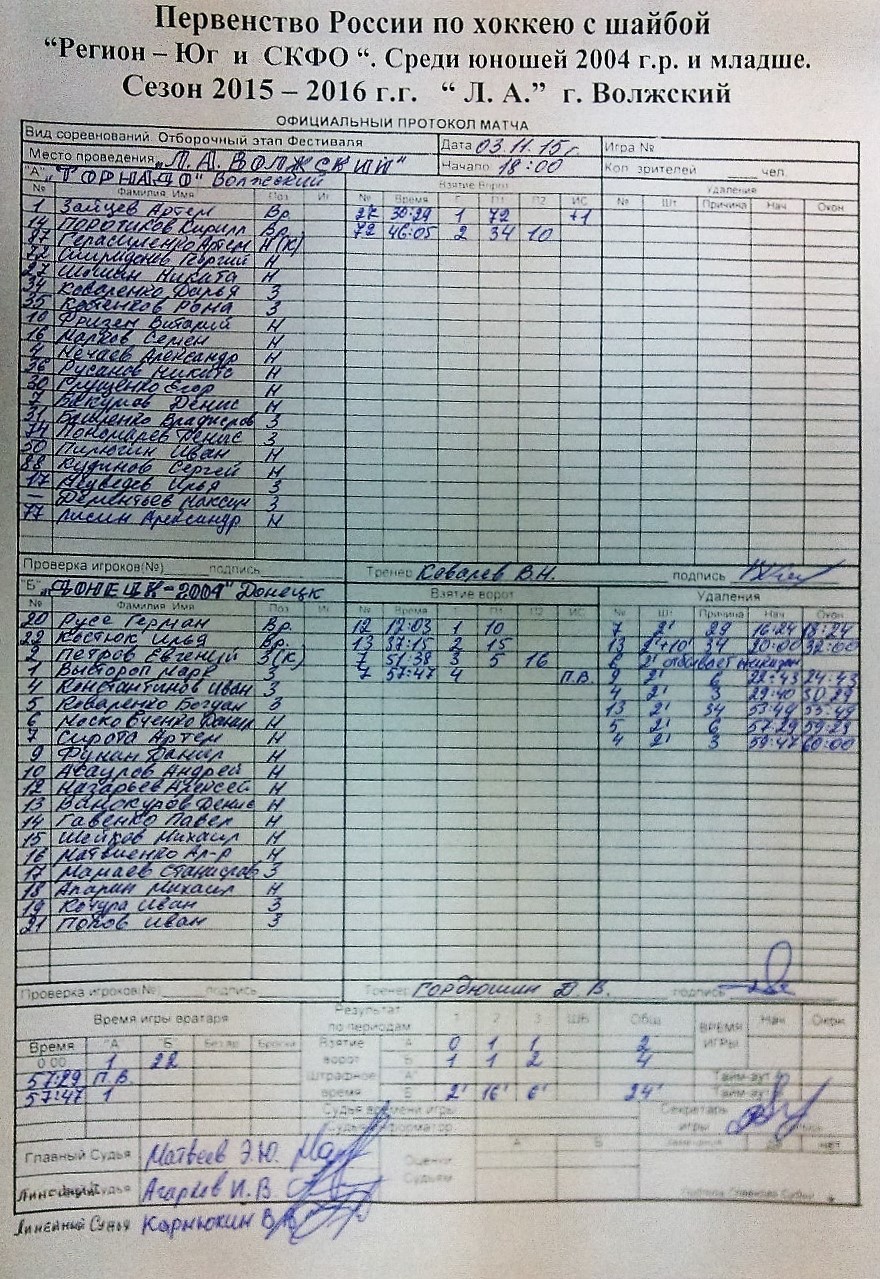 Первенство России по хоккею с шайбой
“Регион – Юг и СКФО “. Среди юношей 2004 г.р. и младше.
Сезон 2015 – 2016 г.г. “ Л. А.” г. Волжский
ОФИЦИАЛЬНЫЙ ПРОТОКОЛ МАТЧА
Вид соревнований. Отборочный этап Фестиваля Дата 03.11.15г. Игра №
Место проведения „Л.А. ВОЛЖСКИЙ" Начало 18:00 Кол. зрителей ____ чел.
"А" „ТОРНАДО" Волжский Взятие ворот Удаления
№ Фамилия Имя Поз Иг № Время Г П1 П2 ИС № Шт Причина Нач Окон
1 Зайцев Артем Вр. 22 30:29 1 72 +1
14 Поротиков Кирилл Вр. 72 46:05 2 34 10
Герасименко Артем Н(К)
72 Спиридонов Георгий Н
27 Шошин Никита Н
34 Коваленко Дарья З
35 Костенков Рома З
10 Фризен Виталий Н
16 Марков Семен Н
4 Нечаев Александр Н
36 Русанов Никита Н
30 Глущенко Егор Н
7 Бакумов Денис Н
31 Владислав З
74 Пономарев Денис З
50 Пирюгин Иван Н
88 Кудинов Сергей Н
17 Медведев Илья З
– Дементьев Максим З
77 Лисин Александр Н
Проверка игроков(№)_____подпись_____ Тренер Ковалев В.Н. подпись
"Б" „ДОНЕЦК-2004" Донецк Взятие ворот Удаления
№ Фамилия Имя Поз Иг № Время Г П1 П2 ИС № Шт Причина Нач Окон
20 Русе Герман Вр. 12 12:03 1 10 7 2' 29 16:24 18:24
22 Костюк Илья Вр. 13 37:15 2 15 13 2'+10' 34 20:00 32:00
2 Петров Евгений З(К) 7 51:38 3 5 16 6 2' отбывает
1 Выстороп Марк З 7 57:47 4 П.В. 9 2' 6 22:43 24:43
4 Константинов Иван З 4 2' 3 29:40 30:29
5 Коваленко Богдан З 13 2' 34 53:49 55:49
6 Московченко Данил Н 5 2' 6 57:29 59:29
7 Сирота Артем Н 4 2' 3 59:47 60:00
9 Фунан Данил Н
10 Асауляв Андрей Н
12 Назарьев Алексей Н
13 Винокуров Денис Н
14 Гавенко Павел Н
15 Шейков Михаил Н
16 Матвиенко Ал-р Н
17 Мамаев Станислав З
18 Апарин Михаил Н
19 Качура Иван З
21 Попов Иван З
Проверка игроков(№)_____подпись_____ Тренер Гордюшин Д.В. подпись
Время игры вратаря Результат по периодам 1 2 3 ШБ Общ ВРЕМЯ ИГРЫ Нач Окон
Время "А" "Б" Без вр. Броски Взятие А 0 1 1 2
0:00 1 22 ворот Б 1 1 2 4
57:29 П.В. Штрафное А Тайм-аут
57:47 1 время Б 2' 16' 6' 24' Тайм-аут
Судья времени игры Секретарь
Судья информатор игры
Главный Судья Матвеев Э.Ю. Оценки А Б
Линейный Судья Агарков И.В Судьям
Линейный Судья Карнюхин В.В